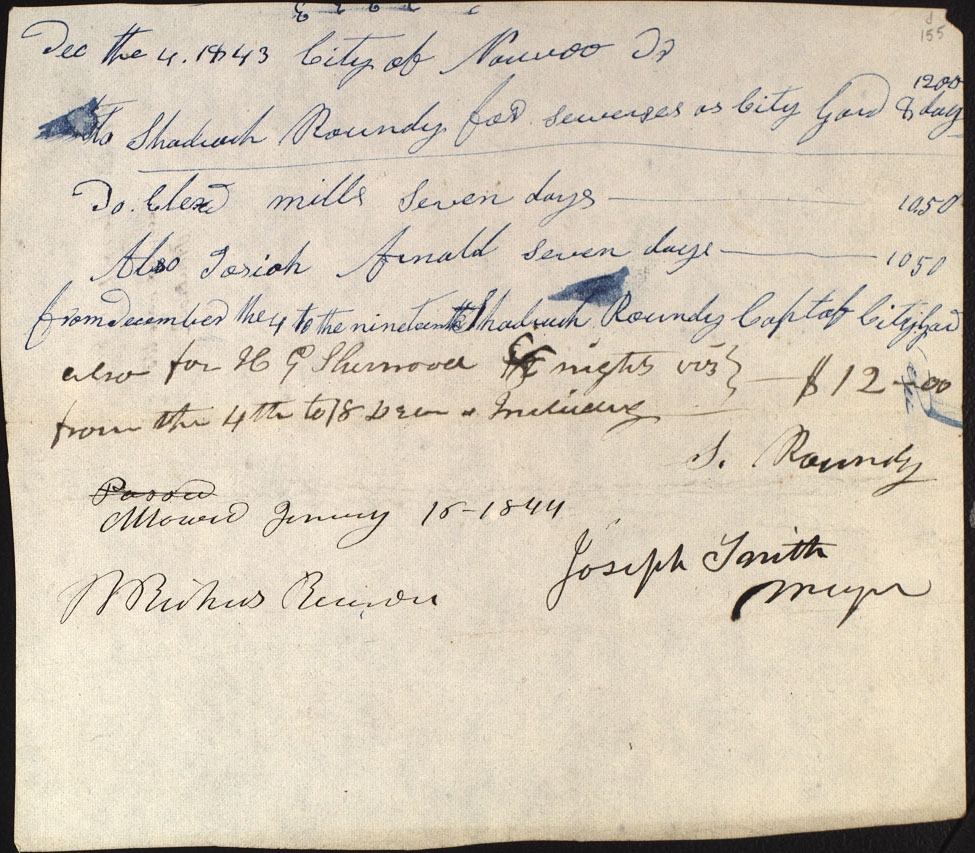 155
Dec the 4. 1843 City of Nauvoo Dr
1200
to Shadrach Roundy for serverses as City Gard 8 day
Do. Elexd mills Seven days 1050
Also Josiah Arnald seven days 1050
from december the 4 to the ninetenth Shadrach Roundy Capt of City Gard
also for H G Sherwood nights viz } $12-00
from the 4th to 18 Decm Including
S. Roundy
Passed
Allowed January 16-1844
W Richards Recorder
Joseph Smith
Mayor